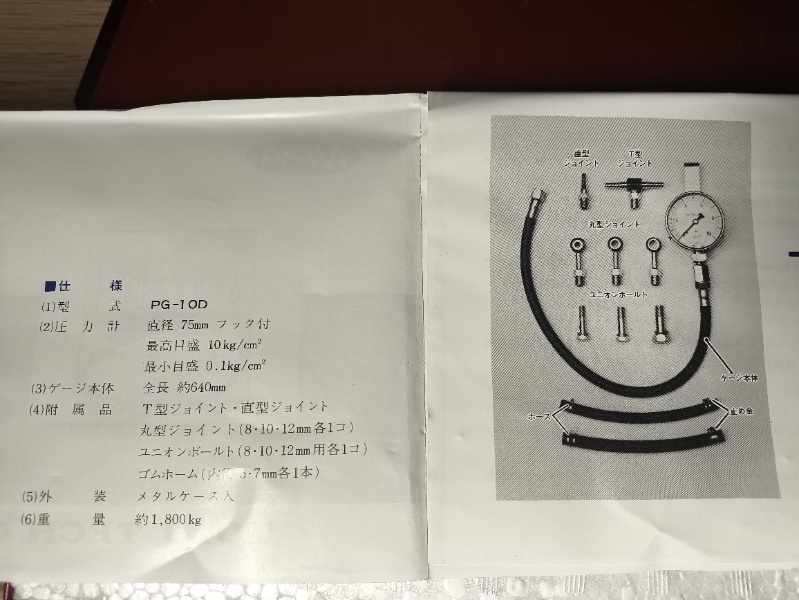 ■仕 様
(1)型 式 PG-10D
(2)圧 力 計 直径 75mm フック付
最高目盛 10kg/cm²
最小目盛 0.1kg/cm²
(3)ゲージ本体 全長 約640mm
(4)附 属 品 T型ジョイント・直型ジョイント
丸型ジョイント(8・10・12mm各1コ)
ユニオンボールト(8・10・12mm用各1コ)
ゴムホーム(内径 ・7mm各1本)
(5)外 装 メタルケース入
(6)重 量 約1,800kg
直型
ジョイント
T型
ジョイント
丸型ジョイント
ユニオンボールト
ゲージ本体
ホース
止め金